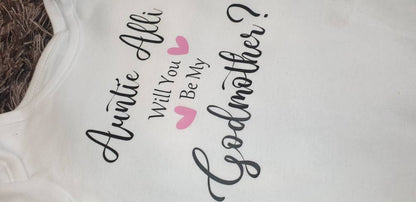 Auntie Alli
Will You
Be My
Godmother?